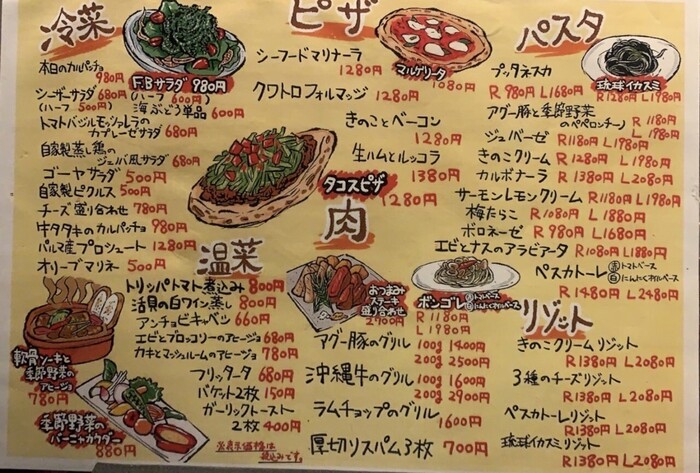 冷菜
本日のカルパッチョ
980円
F.Bサラダ 980円
(ハーフ 600円)
シーザーサラダ 680円
(ハーフ 500円)
海ぶどう単品 600円
トマトバジルモッツァレラの
カプレーゼサラダ 680円
自家製蒸し鶏の
ジェノバ風サラダ 680円
ゴーヤサラダ 500円
自家製ピクルス 500円
チーズ盛り合わせ 780円
牛タタキのカルパッチョ 980円
パルマ産プロシュート 1280円
オリーブマリネ 500円
軟骨ソーキと
季節野菜の
アヒージョ
780円
季節野菜の
バーニャカウダー
880円
温菜
トリッパトマト煮込み 800円
活貝の白ワイン蒸し 800円
アンチョビキャベツ 660円
エビとブロッコリーのアヒージョ 680円
カキとマッシュルームのアヒージョ 780円
フリッタータ 680円
バケット2枚 150円
ガーリックトースト
2枚 400円
※表示価格は
税込みです。
ピザ
シーフードマリナーラ
1280円
マルゲリータ
1080円
クワトロフォルマッジ
1280円
きのことベーコン
1280円
生ハムとルッコラ
1380円
タコスピザ
1280円
肉
おつまみ
ステーキ
盛り合わせ
2900円
アグー豚のグリル
100g 1400円
200g 2500円
沖縄牛のグリル
100g 1600円
200g 2900円
ラムチョップのグリル
1600円
厚切りスパム3枚 700円
パスタ
プッタネスカ
R 980円 L 1680円
琉球イカスミ
R 1280円 L 1980円
アグー豚と季節野菜
のペペロンチーノ R 1180円
L 1980円
ジェノベーゼ R 1180円 L 1980円
きのこクリーム R 1280円 L 1980円
カルボナーラ R 1380円 L 2080円
サーモンレモンクリーム R 1180円 L 1980円
梅たらこ R 1080円 L 1880円
ボロネーゼ R 980円 L 1680円
エビとナスのアラビアータ R 1080円 L 1880円
ペスカトーレ 赤トマトベース
白にんにくオイルベース
R 1480円 L 2480円
ボンゴレ 赤トマトベース
白にんにくオイルベース
R 1180円
L 1980円
リゾット
きのこクリームリゾット
R 1380円 L 2080円
3種のチーズリゾット
R 1380円 L 2080円
ペスカトーレリゾット
R 1380円 L 2080円
琉球イカスミリゾット
R 1380円 L 2080円